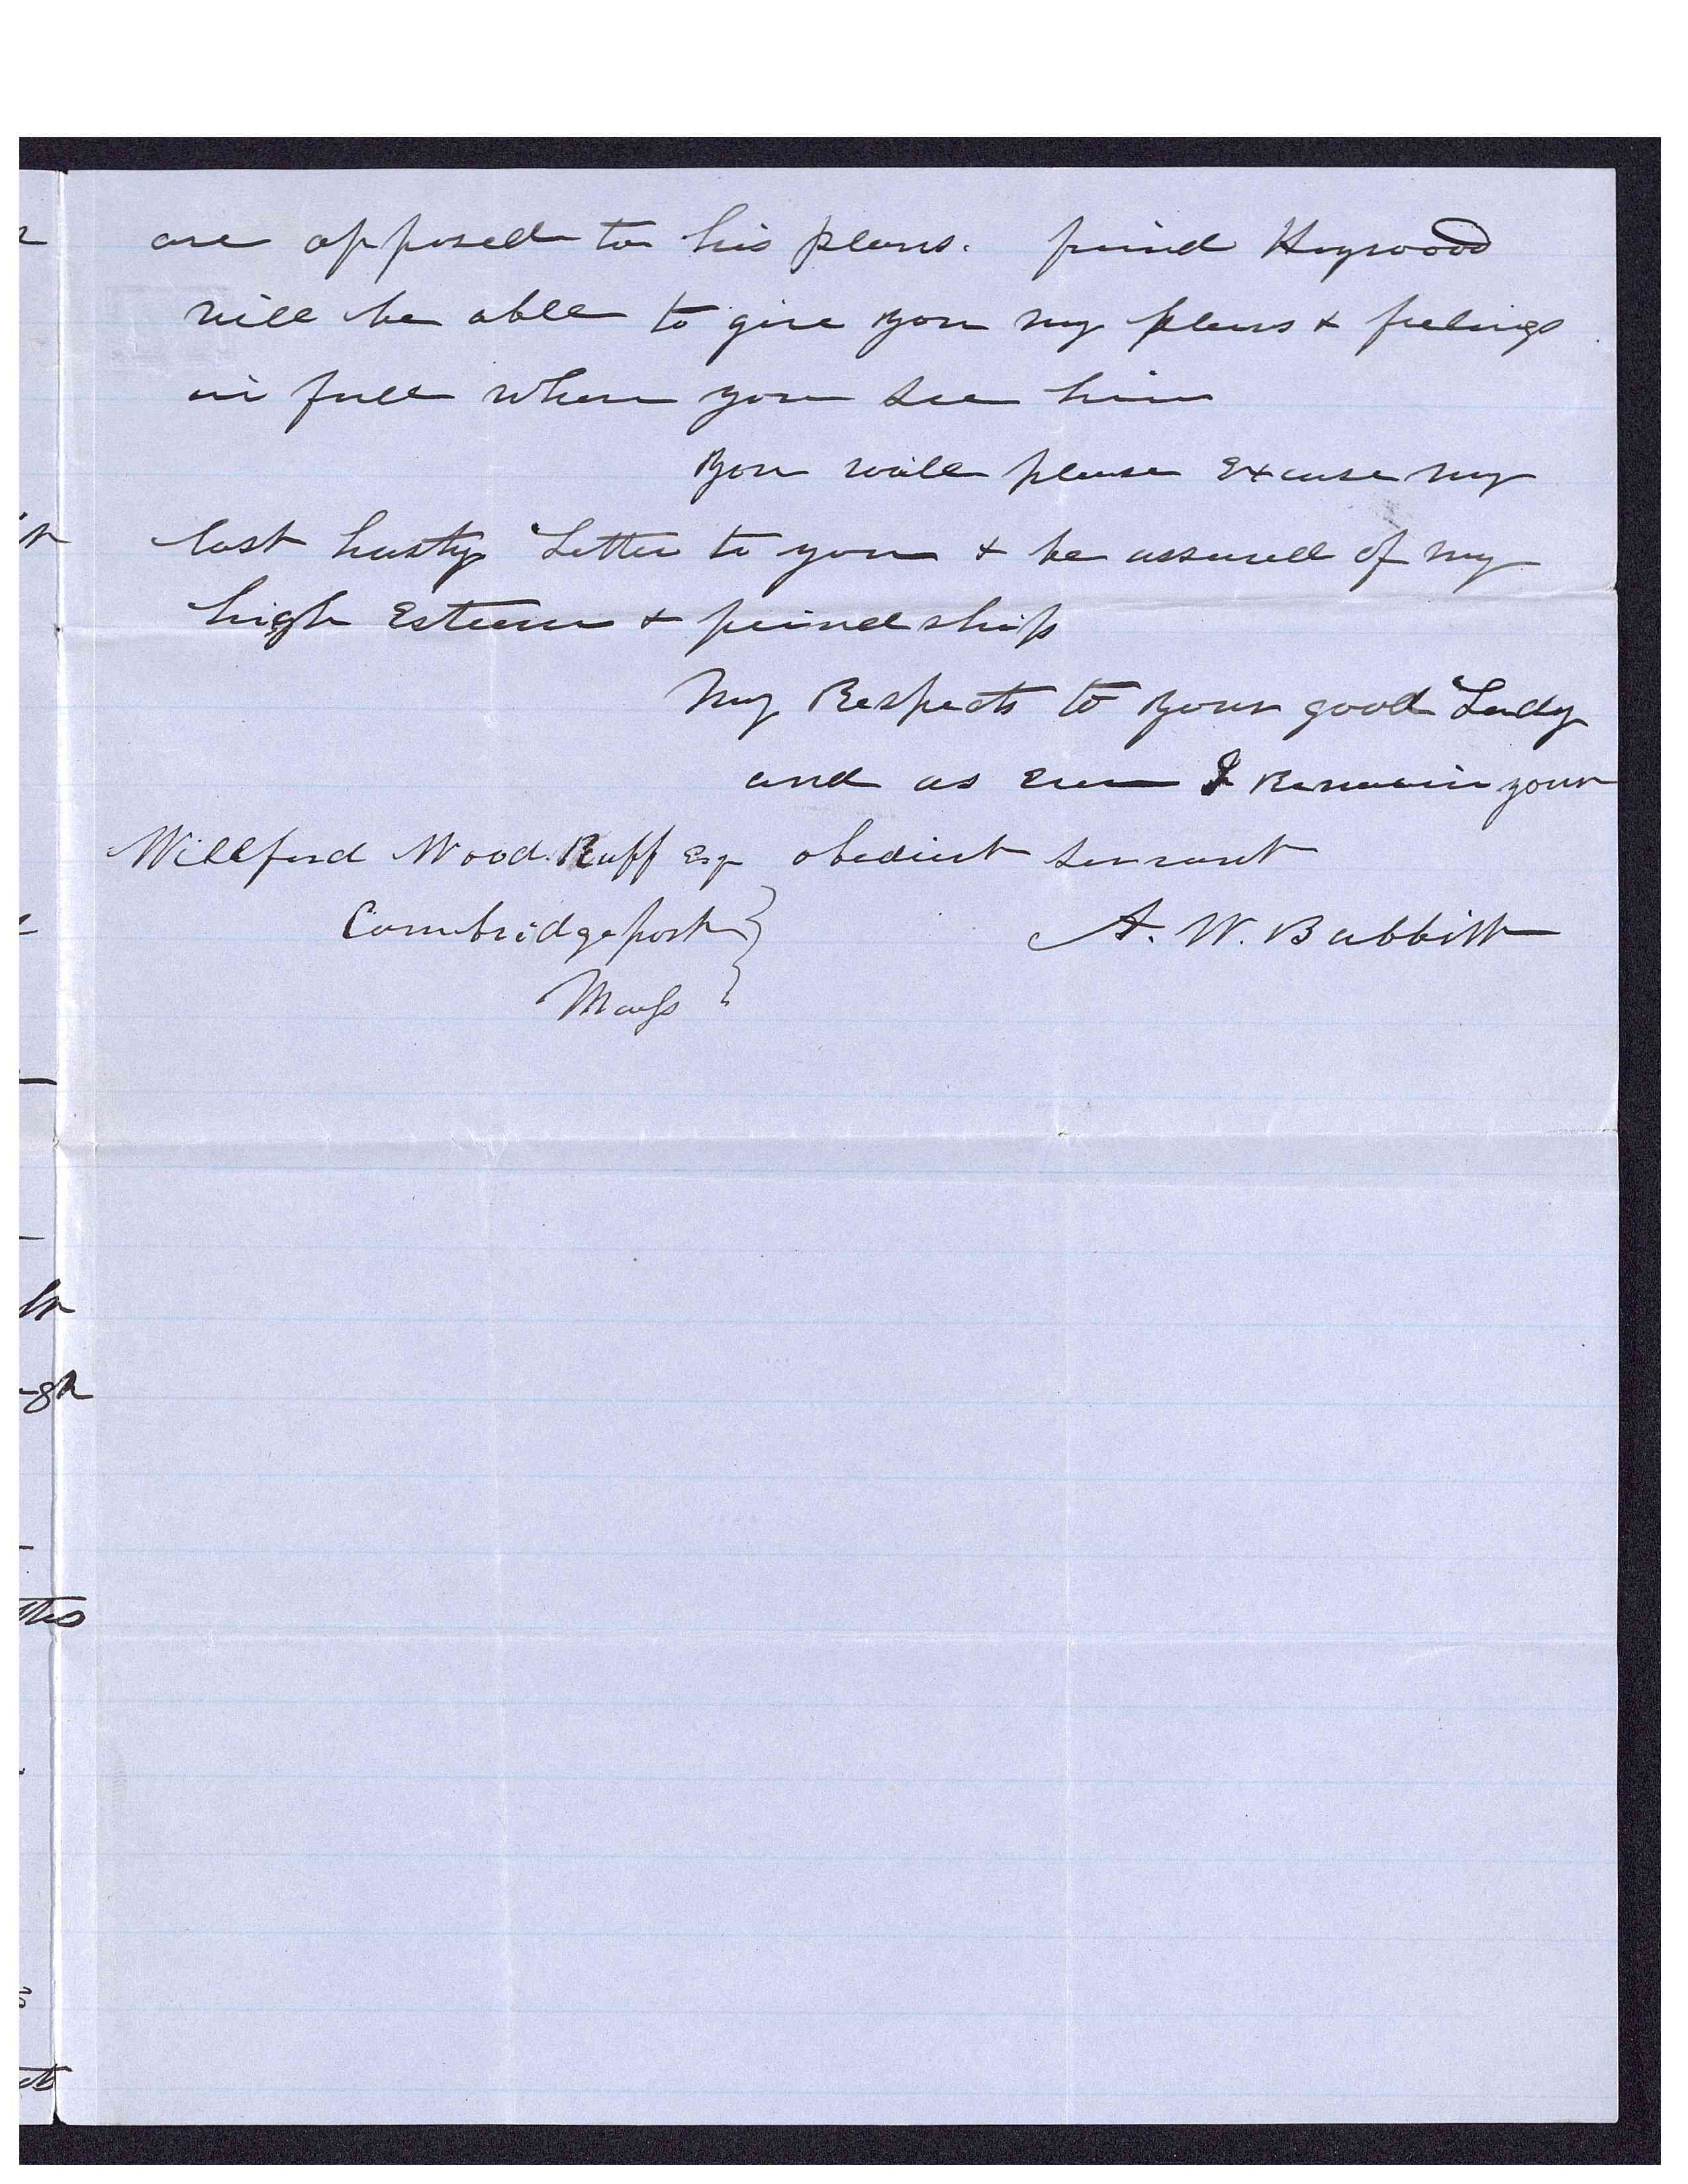 are opposed to his plans. friend Heywood
will be able to give you my plans & feelings
in full when you see him
you will please Excuse my
last hasty Letter to you & be assured of my
high Esteem & friendship
My Respects to your good Lady
and as ever I Remain your
Willford Wood.Ruff Esqr obedient servant
Cambridgeport
A. W. Babbitt
Mass